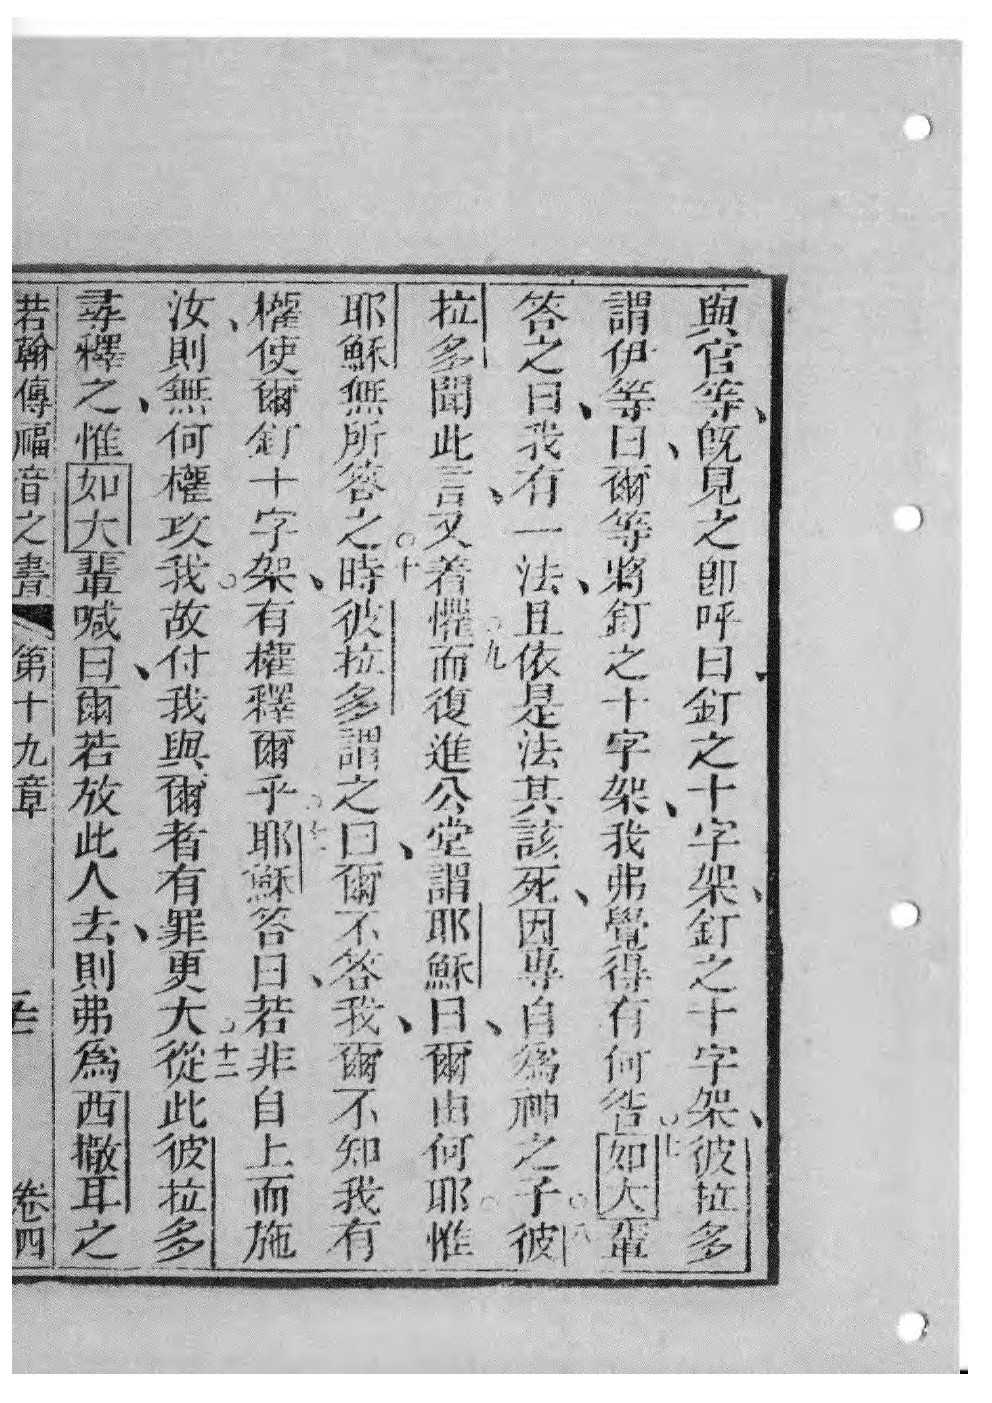 與官等、旣見之卽呼曰、釘之十字架、釘之十字架、彼拉多
謂伊等曰、爾等將釘之十字架、我弗覺得有何咎○七如大輩
答之曰、我有一法、且依是法其該死、因專自爲神之子○八彼
拉多聞此言、又着懼○九而復進公堂謂耶穌曰、爾由何耶○惟
耶穌無所答之○十時彼拉多謂之曰、爾不答我、爾不知我有
權使爾釘十字架、有權釋爾乎○十一耶穌答曰、若非自上而施
汝、則無何權攻我○故付我與爾者有罪更大○十二從此彼拉多
尋釋之、惟如大輩喊曰、爾若放此人去、則弗爲西撒耳之
若翰傳福音之書 第十九章 卷四